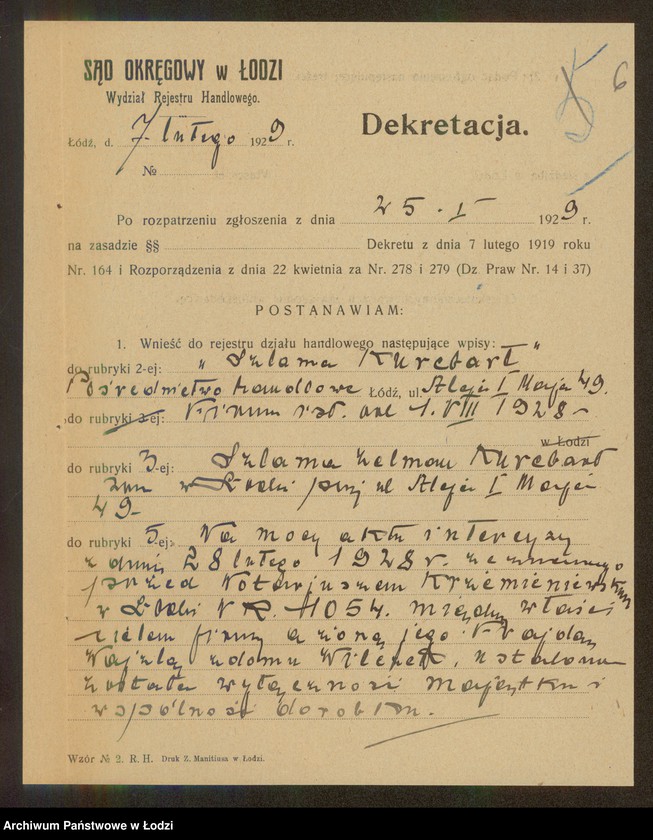 SĄD OKRĘGOWY w ŁODZI
Wydział Rejestru Handlowego.
6
Dekretacja.
Łódź, d. 7 lutego 1929 r.
№
Po rozpatrzeniu zgłoszenia z dnia 25 . I 1929 r.
na zasadzie §§ Dekretu z dnia 7 lutego 1919 roku
Nr. 164 i Rozporządzenia z dnia 22 kwietnia za Nr. 278 i 279 (Dz. Praw Nr. 14 i 37)
POSTANAWIAM:
1. Wnieść do rejestru działu handlowego następujące wpisy:
do rubryki 2-ej: „Szlama Kurcbart"
Pośrednictwo handlowe Łódź, ul. Aleja I Maja 49.
do rubryki 3-ej: Firma ist. od 1. VIII 1928 -
w Łodzi
do rubryki 3-ej: Szlama Zelman Kurcbart
zam w Łodzi przy ul Aleja I Maja
49 -
do rubryki 5-ej: Na mocy aktu intercyzy
z dnia 28 lutego 1928 r. zeznanego
przed Notarjuszem Krzemieniewskim
w Łodzi NR. 1054. między właści
cielem firmy a żoną jego
Wajzlą z domu ustalona
została wyłączność majątku i
wspólność dorobku.
Wzór № 2. R. H. Druk Z. Manitiusa w Łodzi.
Archiwum Państwowe w Łodzi